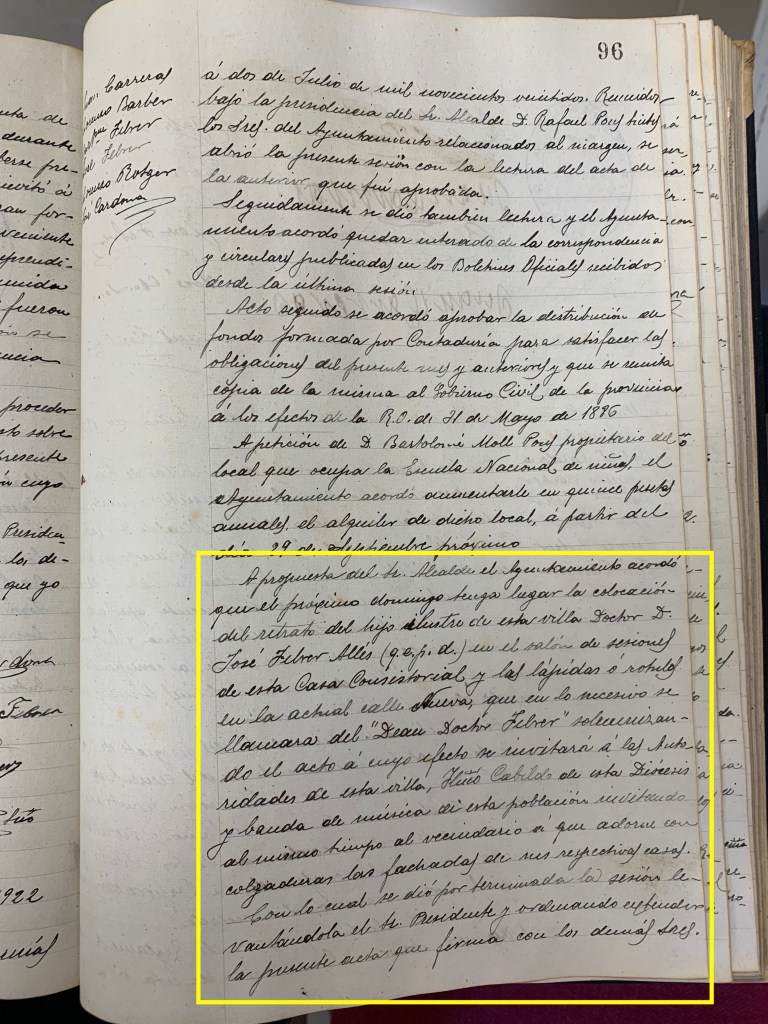 96
Carreras
Barber
Febrer
Febrer
Rotger
Cardona
á dos de Julio de mil novecientos veintidos. Reunidos
bajo la presidencia del Sr. Alcalde D. Rafael Pons
los Sres. del Ayuntamiento relacionados al margen, se
abrió la presente sesión con la lectura del acta de
la anterior que fué aprobada.
Seguidamente se dió tambien lectura y el Ayunta-
miento acordó quedar enterado de la correspondencia
y circulares publicadas en los Boletines Oficiales recibidos
desde la última sesión.
Acto seguido se acordó aprobar la distribución de
fondos formada por Contaduría para satisfacer las
obligaciones del presente mes y anteriores y que se remita
copia de la misma al Gobierno Civil de la provincia
á los efectos de la R.O. de 31 de Mayo de 1896
A petición de D. Bartolomé Moll Pons propietario del
local que ocupa la Escuela Nacional de niños, el
Ayuntamiento acordó aumentarle en quince pesetas
anuales el alquiler de dicho local, á partir del
día 29 de Septiembre próximo
A propuesta del Sr. Alcalde el Ayuntamiento acordó
que el próximo domingo tenga lugar la colocación
del retrato del hijo ilustre de esta villa Doctor D.
José Febrer Allés (q.e.p.d.) en el salón de sesiones
de esta Casa Consistorial y las lápidas ó rótulos
en la actual calle Nueva, que en lo sucesivo se
llamara del "Dean Doctor Febrer" solemnizan-
do el acto á cuyo efecto se invitará á las Auto-
ridades de esta villa, Iltmo Cabildo de esta Diócesis
y banda de música de esta población invitando
al mismo tiempo al vecindario á que adorne con
colgaduras las fachadas de sus respectivas casas.
Con lo cual se dió por terminada la sesión le-
vantándola el Sr. Presidente y ordenando extender
la presente acta que firma con los demás Sres.
durante
proceder
sobre
presente
cuyo
que yo
Febrer
1922